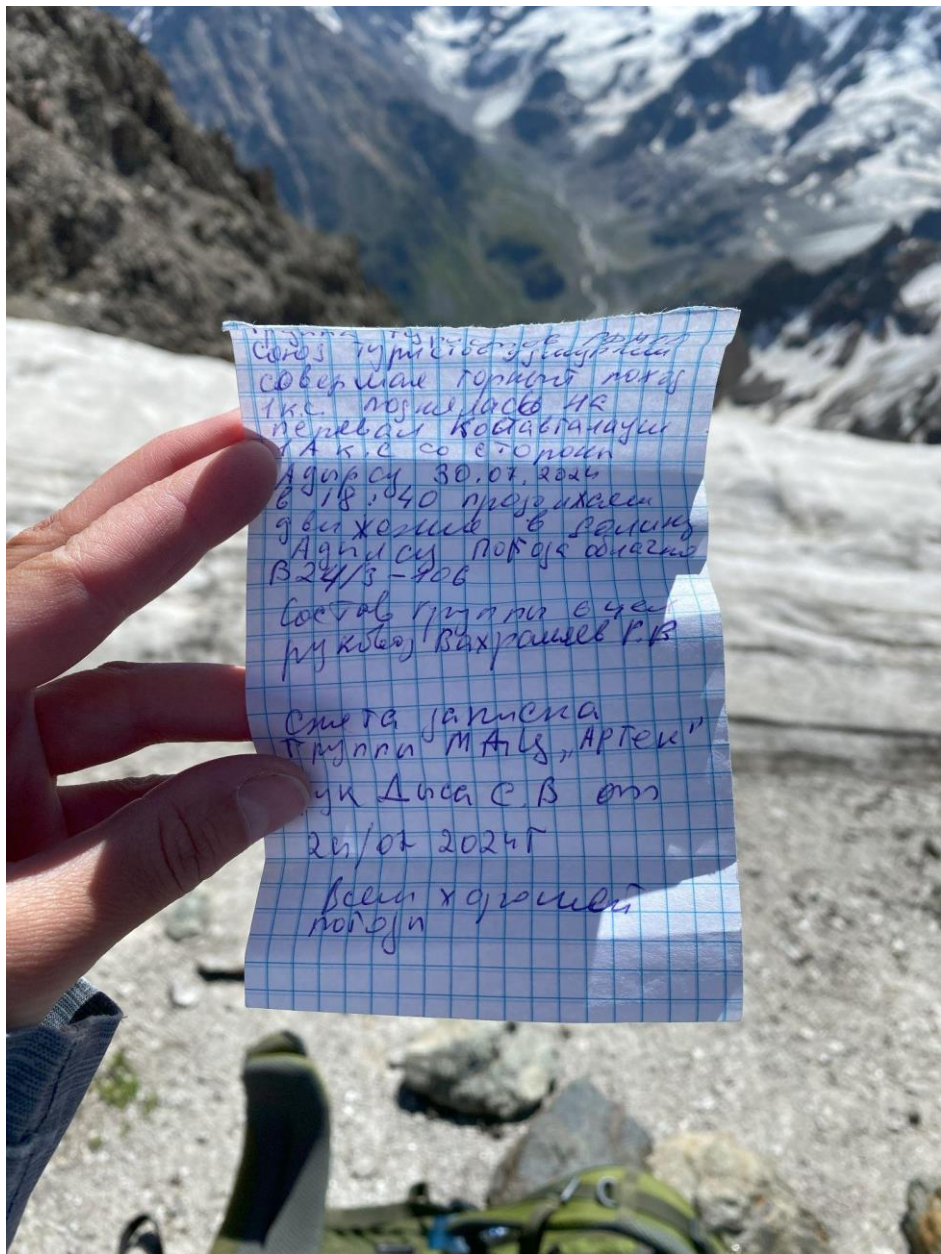 Группа туристов
Союз туристов
совершая горный поход
1 к.с. поднялась на
перевал Койавганауш
1А к.с со стороны
Адырсу 30.07.2024
в 18:40 продолжаем
движение в долину
Адылсу погода облачно
Состав группы 6 чел
руковод Вахрамеев Г.В
Снята записка
группы МАЦ „Артек"
рук Дыса С.В от
24/07 2024г
Всем хорошей
погоды